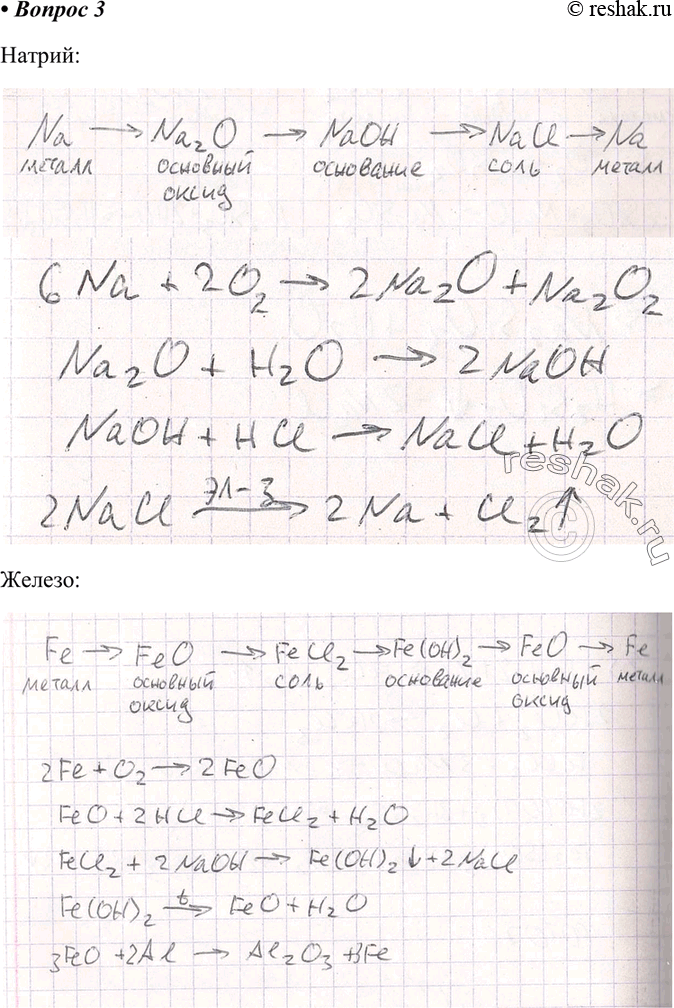 • Вопрос 3
© reshak.ru
Натрий:
Na → Na₂O → NaOH → NaCl → Na
металл основный основание соль металл
оксид
6Na + 2O₂ → 2Na₂O + Na₂O₂
Na₂O + H₂O → 2NaOH
NaOH + HCl → NaCl + H₂O
2NaCl эл-з → 2Na + Cl₂↑
reshak.ru
©
Железо:
Fe → FeO → FeCl₂ → Fe(OH)₂ → FeO → Fe
металл основный соль основание основный металл
оксид оксид
2Fe + O₂ → 2FeO
FeO + 2HCl → FeCl₂ + H₂O
FeCl₂ + 2NaOH → Fe(OH)₂↓ + 2NaCl
Fe(OH)₂ t → FeO + H₂O
3FeO + 2Al → Al₂O₃ + 3Fe